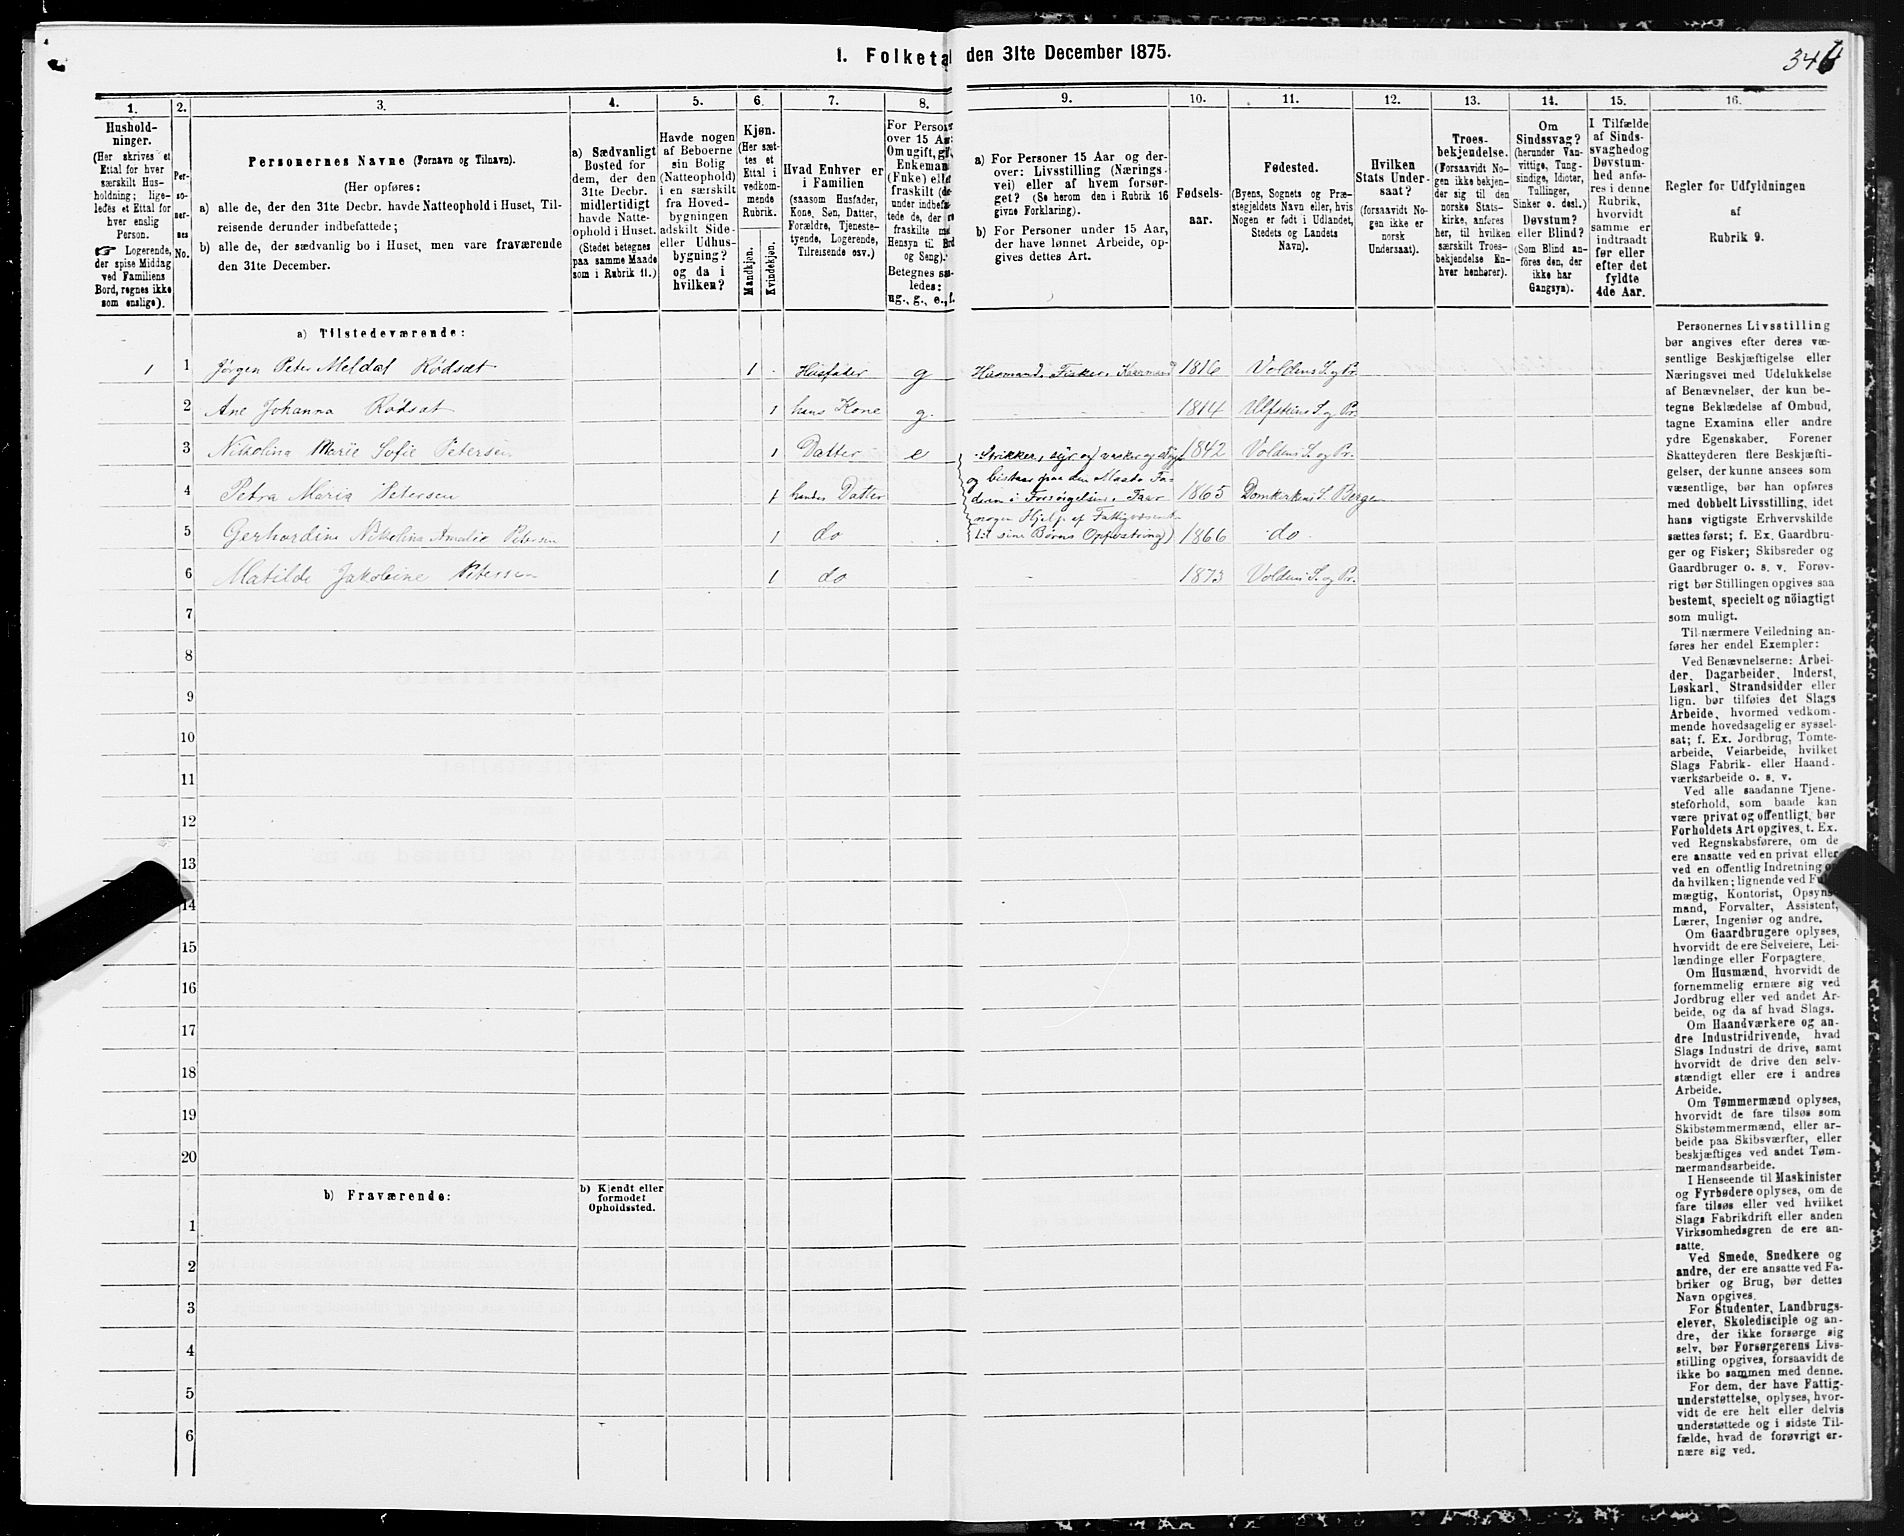 1. Folketal den 31te December 1875.
346
1.
2.
3.
4.
5.
6.
7.
8.
9.
10.
11.
12.
13.
14.
15.
16.
Hushold-
ninger.
(Her skrives et
Ettal for hver
særskilt Hus-
holdning; lige-
ledes et Ettal for
hver enslig
Person.
☞ Logerende,
der spise Middag
ved Familiens
Bord, regnes ikke
som enslige).
Per-
so-
ner-
nes
No.
Personernes Navne (Fornavn og Tilnavn).
(Her opføres:
a) alle de, der den 31te Decbr. havde Natteophold i Huset, Til-
reisende derunder indbefattede;
b) alle de, der sædvanlig bo i Huset, men vare fraværende
den 31te December.
a) Sædvanligt
Bosted for
dem, der den
31te Decbr.
midlertidigt
havde Natte-
ophold i Huset.
(Stedet betegnes
paa samme Maade
som i Rubrik 11.)
Havde nogen
af Beboerne
sin Bolig
(Natteophold)
i en særskilt
fra Hoved-
bygningen
adskilt Side-
eller Udhus-
bygning?
og da i
hvilken?
Kjøn.
(Her sæt-
tes et
Ettal i
vedkom-
mende
Rubrik.
Mandkjøn.
Kvindekjøn.
Hvad Enhver er
i Familien
(saasom Husfader,
Kone, Søn, Datter,
Forældre, Tjeneste-
tyende, Logerende,
Tilreisende osv.)
For Persone
over 15 Aar
Om ugift, gif
Enkemand
(Enke) eller
fraskilt (de
under indbefat-
tede de, der
fraskilte med
Hensyn til Bord
og Seng).
Betegnes saa-
ledes:
ug., g., e., f.
a) For Personer 15 Aar og der-
over: Livsstilling (Nærings-
vei) eller af hvem forsør-
get? (Se herom den i Rubrik 16
givne Forklaring).
b) For Personer under 15 Aar,
der have lønnet Arbeide, op-
gives dettes Art.
Fødsels-
aar.
Fødested.
(Byens, Sognets og Præ-
stegjeldets Navn eller, hvis
Nogen er født i Udlandet,
Stedets og Landets
Navn).
Hvilken
Stats Under-
saat?
(forsaavidt No-
gen ikke er
norsk
Undersaat).
Troes-
bekjendelse.
(Forsaavidt No-
gen ikke bekjen-
der sig til den
norske Stats-
kirke, anføres
her, til hvilken
særskilt Troes-
bekjendelse En-
hver henhører).
Om
Sindssvag?
(herunder Van-
vittige, Tung-
sindige, Idioter,
Tullinger,
Sinker o. desl.)
Døvstum?
eller Blind?
(Som Blind an-
føres den, der
ikke har
Gangsyn).
I Tilfælde
af Sinds-
svaghed og
Døvstum-
hed anfø-
res i denne
Rubrik,
hvorvidt
samme er
indtraadt
før eller
efter det
fyldte
4de Aar.
Regler for Udfyldningen
af
Rubrik 9.
a) Tilstedeværende:
1 1 Jørgen Peter Meldal Rødsæt 1 Husfader g Husmand, Fisker, 1816 Voldens S. og Pr.
2 Ane Johanna Rødsæt 1 hans Kone g. 1814 Ulfstens S og Pr.
3 Nikolina Marie Sofie Petersen 1 Datter e Strikker, syr og vasker og 1842 Voldens S. og Pr.
og bistaar paa den Maade Fa-
4 Petra Maria Petersen 1 hendes Datter deren i Forsørgelsen. Faar 1865 Domkirkens S. Bergen
nogen Hjelp af Fattigvæsenet
5 Gerhardine Nikolina Amalie Petersen 1 do til sine Børns Opfostring) 1866 do
6 Matilde Jakobine Petersen 1 do 1873 Voldens S. og Pr.
7
8
9
10
11
12
13
14
15
16
17
18
19
20
b) Fraværende:
b) Kjendt eller
formodet
Opholdssted.
1
2
3
4
5
6
Personernes Livsstilling
bør angives efter deres væ-
sentlige Beskjæftigelse eller
Næringsvei med Udelukkelse
af Benævnelser, der kun be-
tegne Beklædelse af Ombud,
tagne Examina eller andre
ydre Egenskaber. Forener
Skatteyderen flere Beskjæfti-
gelser, der kunne ansees som
væsentlige, bør han opføres
med dobbelt Livsstilling, idet
hans vigtigste Erhvervskilde
sættes først; f. Ex. Gaardbru-
ger og Fisker; Skibsreder og
Gaardbruger o. s. v. Forøv-
rigt bør Stillingen opgives saa
bestemt, specielt og nöiagtigt
som muligt.
Til nærmere Veiledning an-
føres her endel Exempler:
Ved Benævnelserne: Arbei-
der, Dagarbeider, Inderst,
Løskarl, Strandsidder eller
lign. bør tilføies det Slags
Arbeide, hvormed vedkom-
mende hovedsagelig er syssel-
sat; f. Ex. Jordbrug, Tomte-
arbeide, Veiarbeide, hvilket
Slags Fabrik- eller Haand-
værksarbeide o. s. v.
Ved alle saadanne Tjene-
steförhold, som baade kan
være privat og offentligt, bør
Forholdets Art opgives, t. Ex.
ved Regnskabsførere, om de
ere ansatte ved en privat eller
ved en offentlig Indretning og
da hvilken; lignende ved Fuld-
mægtig, Kontorist, Opsyns-
mand, Forvalter, Assistent,
Lærer, Ingeniør og andre.
Om Gaardbrugere oplyses,
hvorvidt de ere Selveiere, Lei-
lændinge eller Forpagtere.
Om Husmænd, hvorvidt de
fornemmelig ernære sig ved
Jordbrug eller ved andet Ar-
beide, og da af hvad Slags.
Om Haandværkere og an-
dre Industridrivende, hvad
Slags Industri de drive, samt
hvorvidt de drive den selv-
stændigt eller ere i andres
Arbeide.
Om Tømmermænd oplyses,
hvorvidt de fare tilsøs som
Skibstømmermænd, eller ar-
beide paa Skibsværfter, eller
beskjæftiges ved andet Tøm-
mermandsarbeide.
I Henseende til Maskinister
og Fyrbødere oplyses, om de
fare tilsøs eller ved hvilket
Slags Fabrikdrift eller anden
Virksomhedsgren de ere an-
satte.
Ved Smede, Snedkere og
andre, der ere ansatte ved Fa-
briker og Brug, bør dettes
Navn opgives.
For Studenter, Landbrugs-
elever, Skoledisciple og an-
dre, der ikke forsørge sig
selv, bør Forsørgerens Livs-
stilling opgives, forsaavidt de
ikke bo sammen med denne.
For dem, der have Fattig-
understøttelse, oplyses, hvor-
vidt de ere helt eller delvis
understøttede og i sidste Til-
fælde, hvad de forøvrigt er-
nære sig ved.